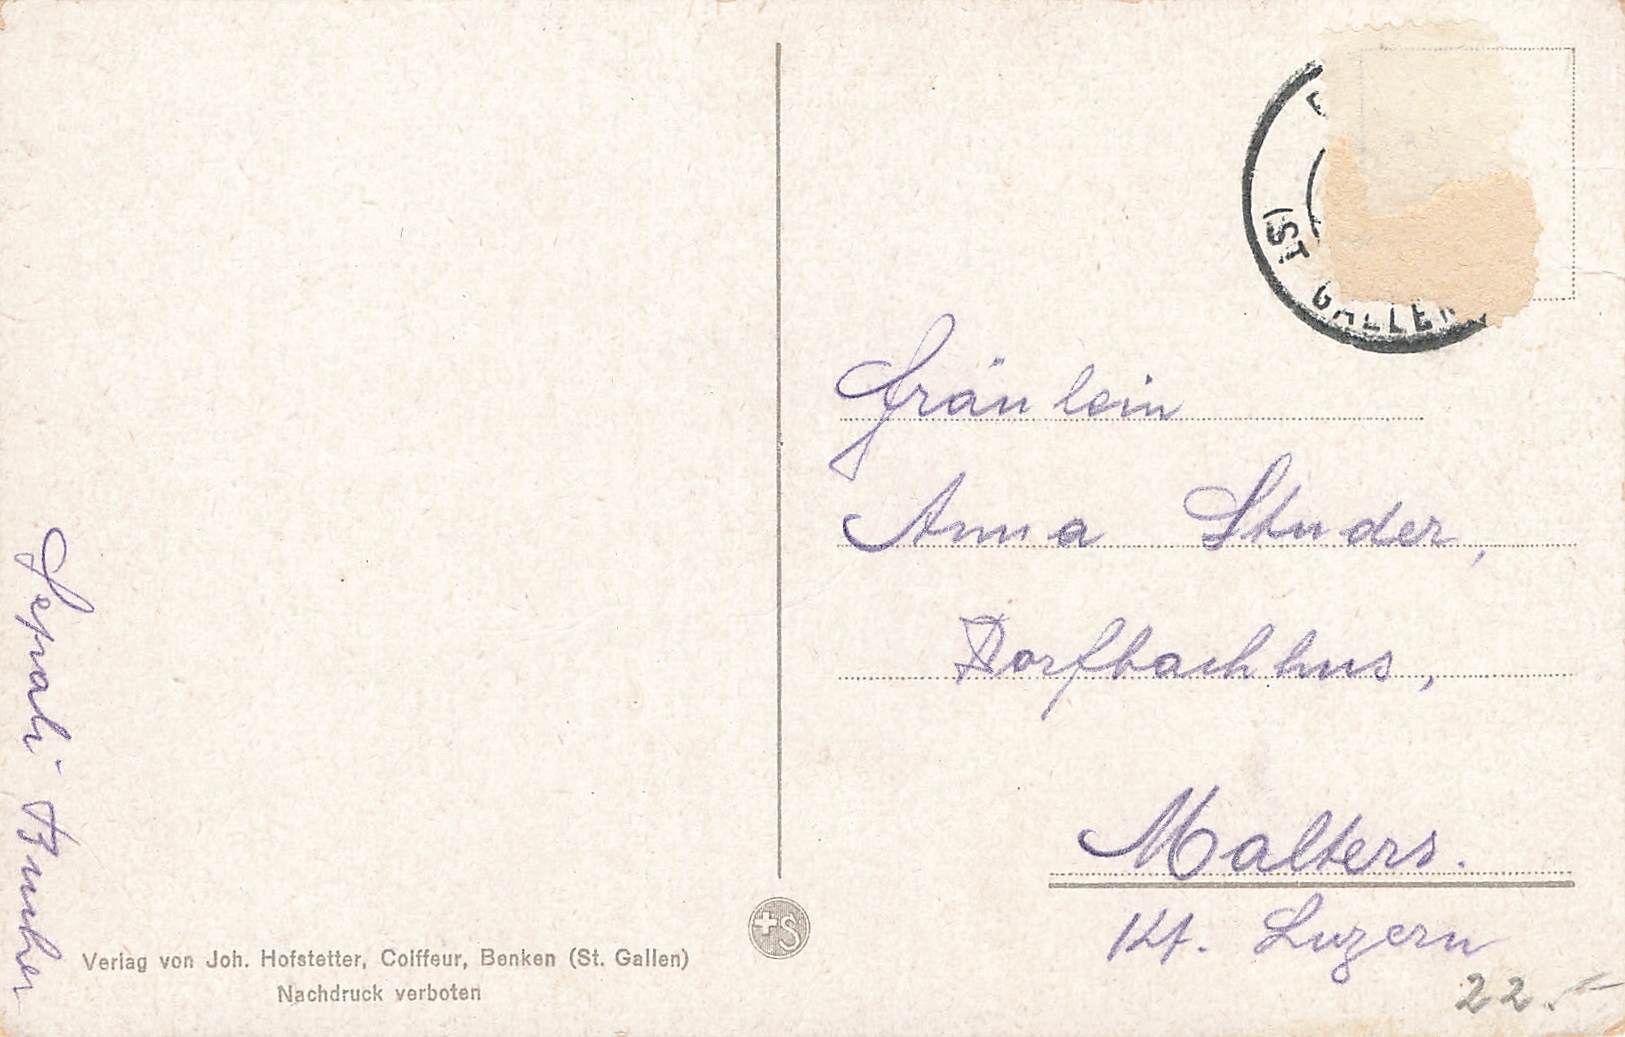 (ST. GALLEN)
Fräulein
Anna Studer,
Dorfbachhus,
Malters.
Kt. Luzern
22.-
Bucher
+S
Verlag von Joh. Hofstetter, Coiffeur, Benken (St. Gallen)
Nachdruck verboten